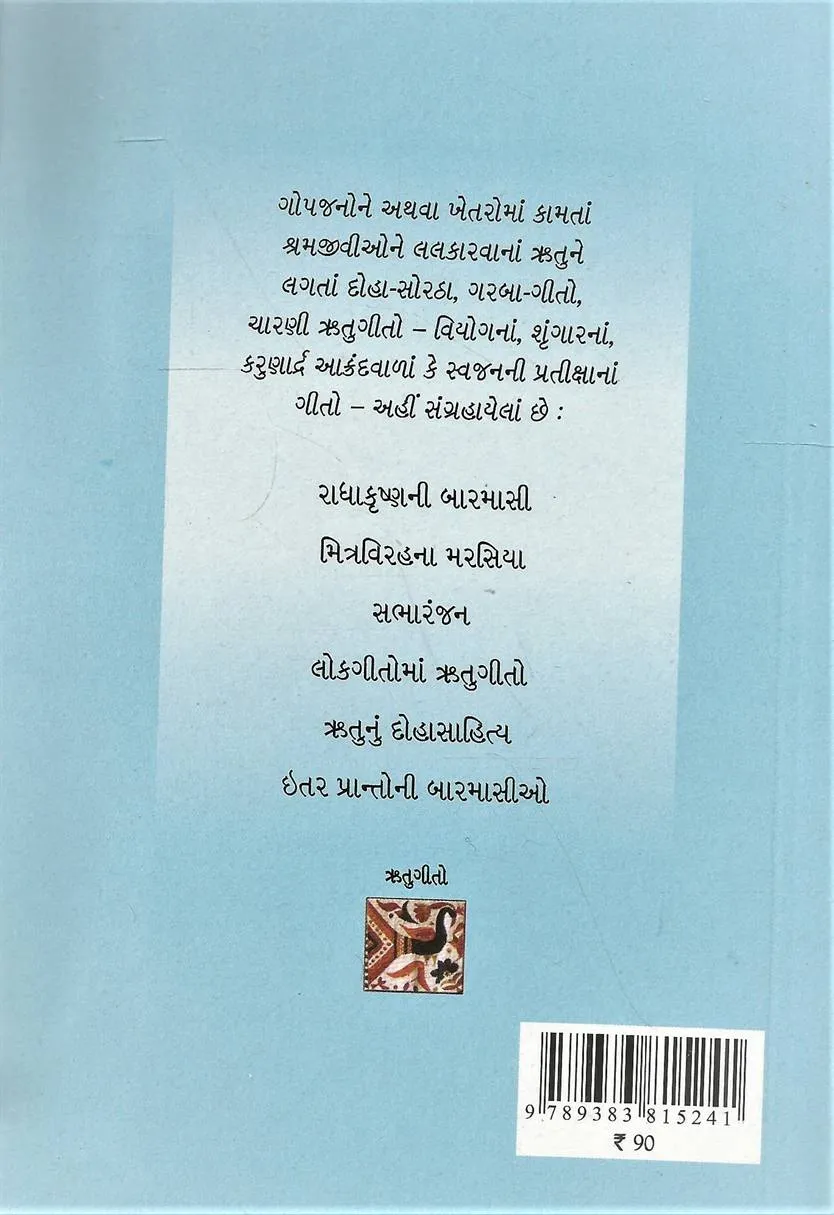 ગોપજનોને અથવા ખેતરોમાં કામતાં
શ્રમજીવીઓને લલકારવાનાં ઋતુને
લગતાં દોહા-સોરઠા, ગરબા-ગીતો,
ચારણી ઋતુગીતો – વિયોગનાં, શૃંગારનાં,
કરુણાર્દ્ર આક્રંદવાળાં કે સ્વજનની પ્રતીક્ષાનાં
ગીતો – અહીં સંગ્રહાયેલાં છે :
રાધાકૃષ્ણની બારમાસી
મિત્રવિરહના મરસિયા
સભારંજન
લોકગીતોમાં ઋતુગીતો
ઋતુનું દોહાસાહિત્ય
ઇતર પ્રાન્તોની બારમાસીઓ
ઋતુગીતો
9 789383 815241
₹ 90